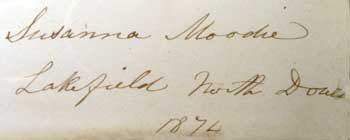 Susanna Moodie
Lakefield North Douro
1874